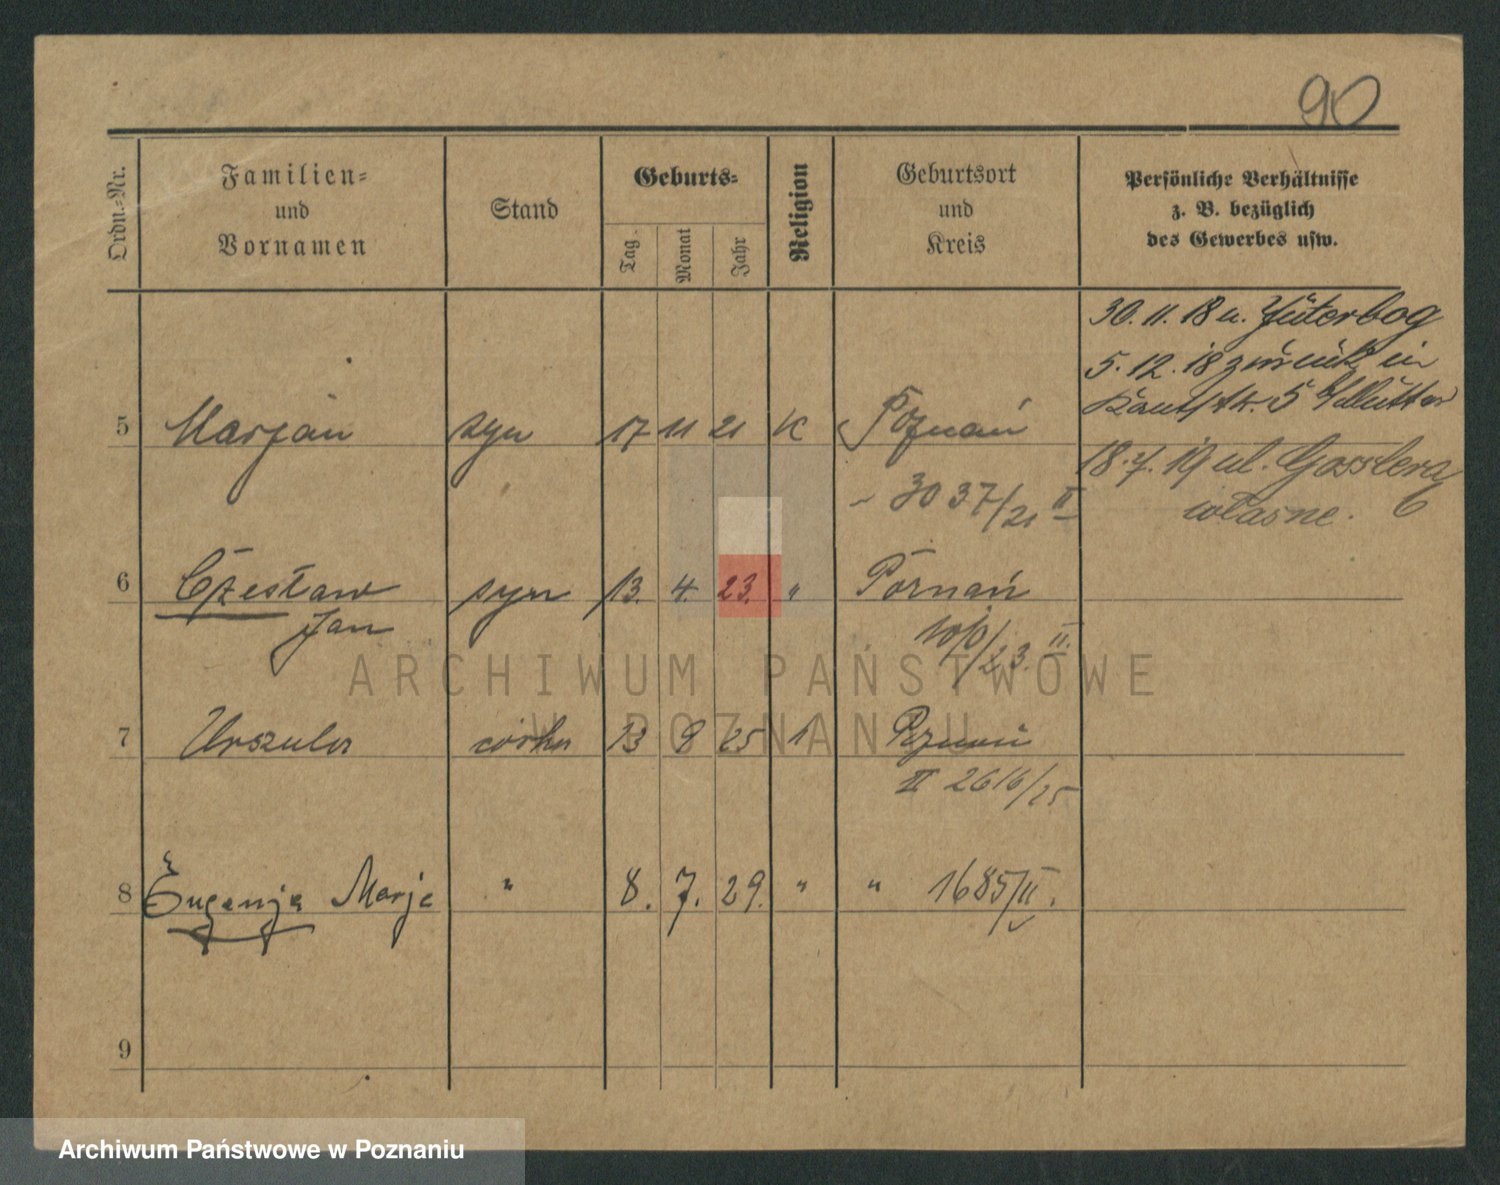 90
Ordn.-Nr.
Familien-
und
Vornamen
Stand
Geburts-
Tag.
Monat
Jahr
Religion
Geburtsort
und
Kreis
Persönliche Verhältnisse
z. B. bezüglich
des Gewerbes usw.
30. 11. 18 u. Jüterbog
5. 12. 18 zurück in
5 Marjan syn 17 11 21 K Poznań
3037/21 II
18. 7. 19 ul. Gosslera
własne.
6 Czesław syn 13. 4. 23. " Poznań
Jan
/23. II.
7 Urszula córka 13 9 25 Poznań
II 2616/25
8 Eugenja Marja " 8. 7. 29. " " 1685/II.
9
ARCHIWUM PAŃSTWOWE
W POZNANIU
Archiwum Państwowe w Poznaniu